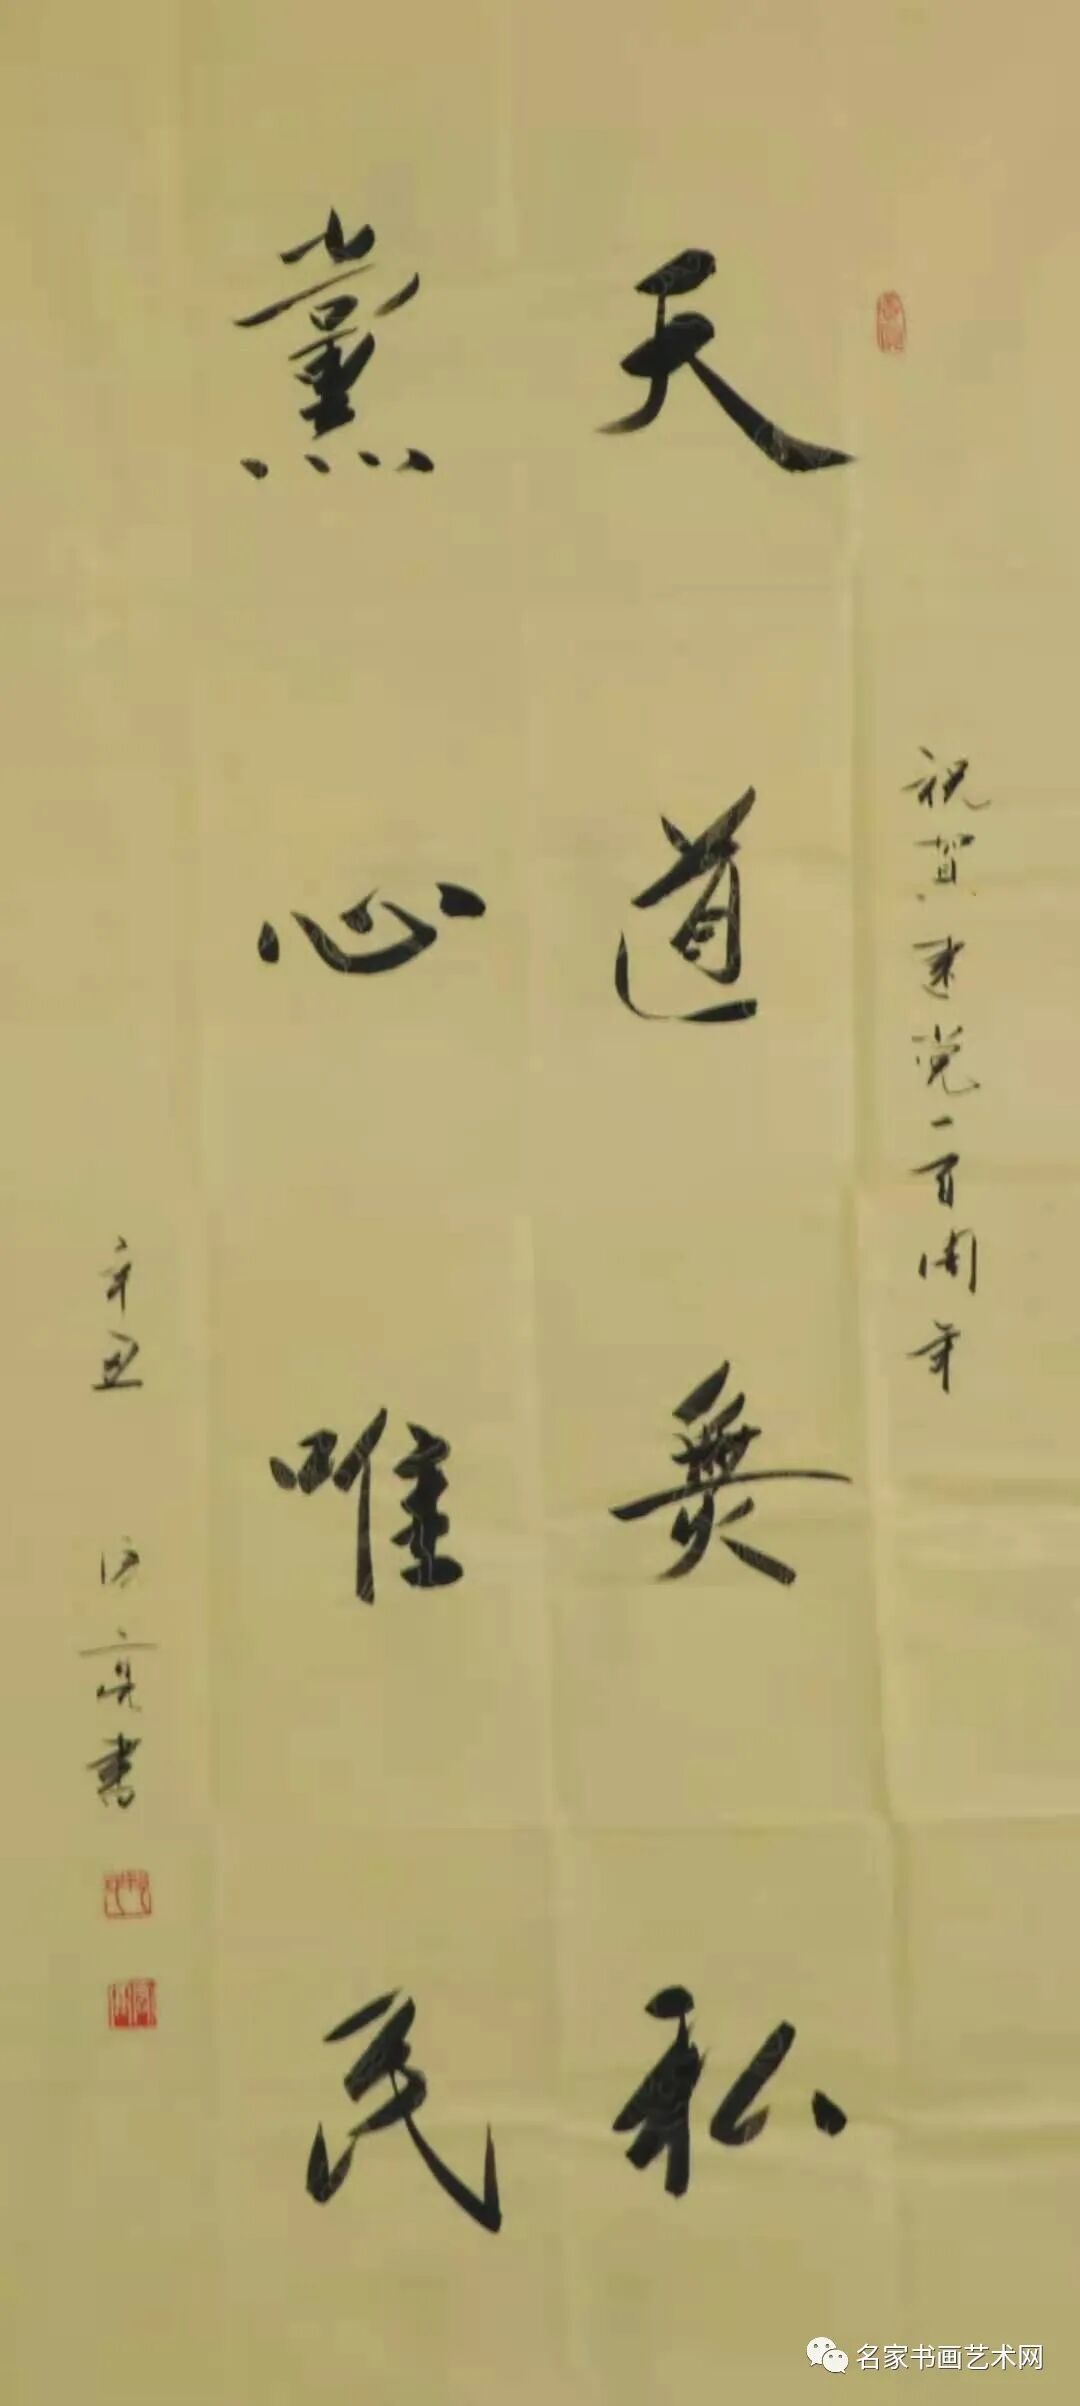 祝贺建党一百周年
天道無私
黨心唯民
辛丑
亮書
名家书画艺术网